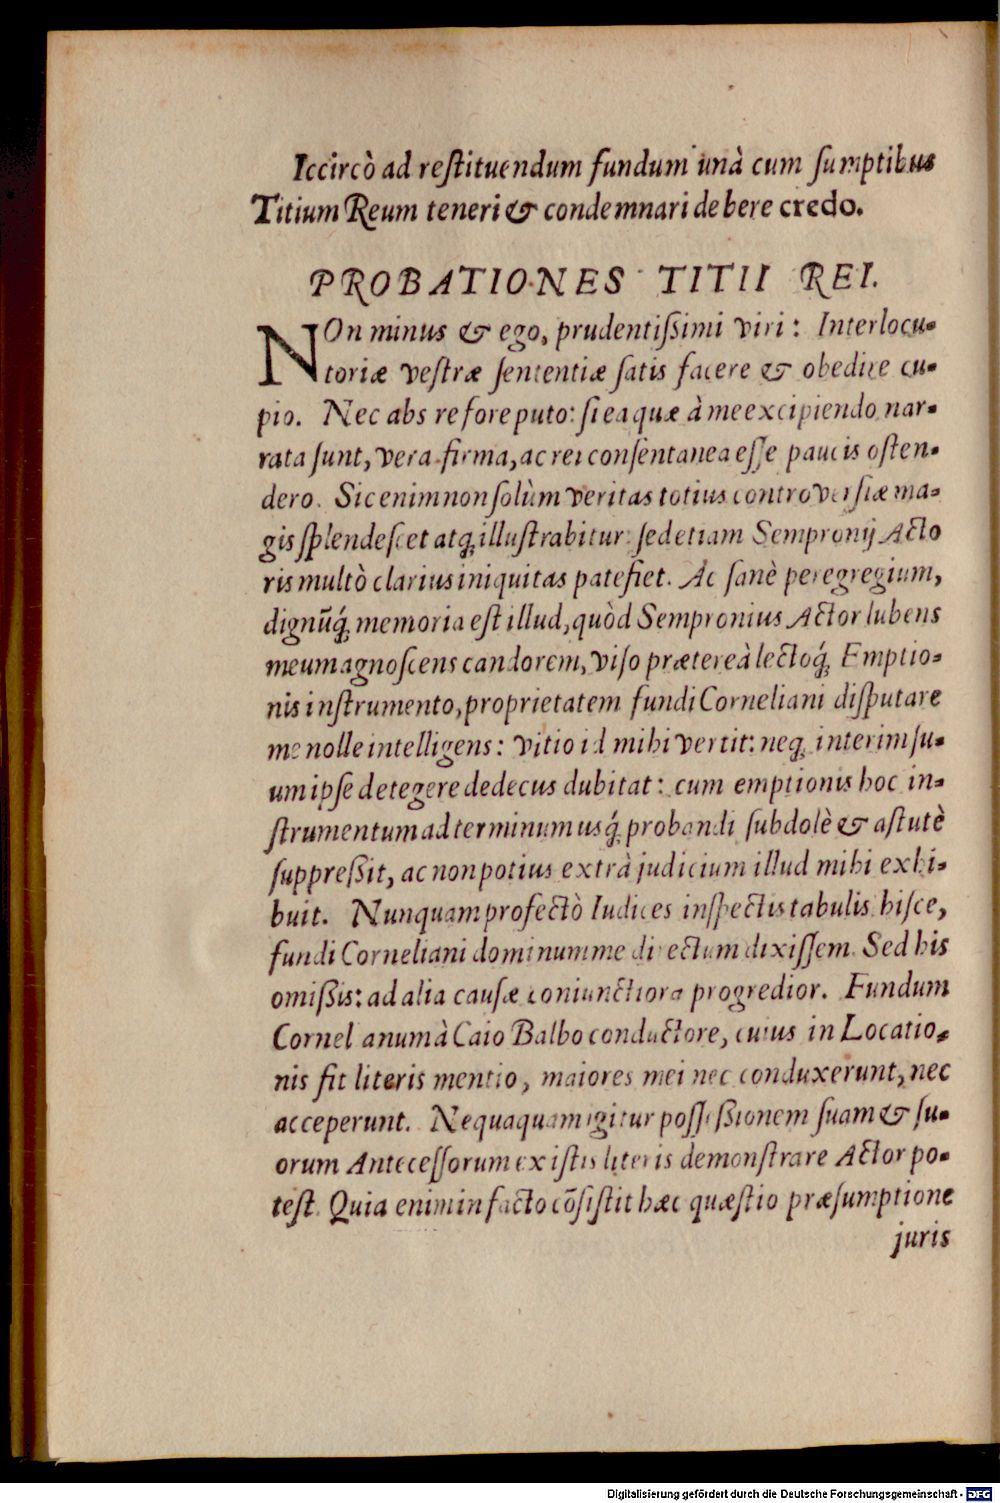 Iccircò ad reſtituendum fundum unà cum ſumptibus
Titium Reum teneri & condemnari debere credo.
PROBATIONES TITII REI.
NOn minus & ego, prudentiſſimi viri: Interlocu-
toriæ veſtræ ſententiæ ſatis facere & obedire cu-
pio. Nec abs re fore puto: ſi ea quæ à me excipiendo nar-
rata ſunt, vera firma, ac rei conſentanea eſſe paucis oſten-
dero. Sic enim non ſolùm veritas totius controverſiæ ma-
gis ſplendeſcet atq; illuſtrabitur: ſed etiam Sempronij Acto
ris multò clarius iniquitas patefiet. Ac ſanè peregregium,
dignũq́; memoria eſt illud, quòd Sempronius Actor lubens
meum agnoſcens candorem, viſo prætereà lectoq́; Emptio-
nis inſtrumento, proprietatem fundi Corneliani diſputare
me nolle intelligens: vitio id mihi vertit: neq; interim ſu-
um ipſe detegere dedecus dubitat: cum emptionis hoc in-
ſtrumentum ad terminum usq́; probandi ſubdolè & aſtutè
ſuppreßit, ac non potius extrà judicium illud mihi exhi-
buit. Nunquam profectò Iudices inſpectis tabulis hiſce,
fundi Corneliani dominum me directum dixiſſem. Sed his
omißis: ad alia cauſæ coniunctiora progredior. Fundum
Cornelianum à Caio Balbo conductore, cuius in Locatio-
nis fit literis mentio, maiores mei nec conduxerunt, nec
acceperunt. Nequaquam igitur poſſeßionem ſuam & ſu-
orum Anteceſſorum ex iſtis literis demonſtrare Actor po-
teſt. Quia enim in facto cõſiſtit hæc quæſtio præſumptione
juris
Digitalisierung gefördert durch die Deutsche Forschungsgemeinschaft - DFG